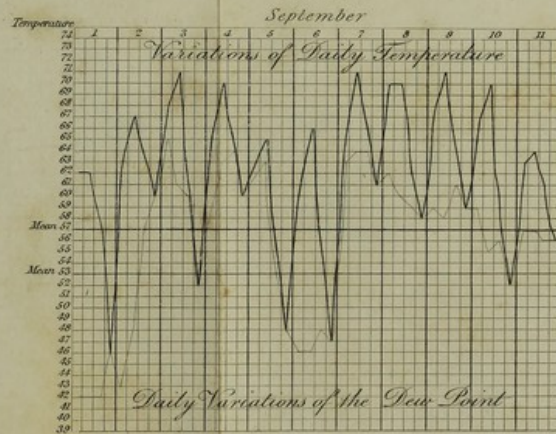 September
Temperature
1 2 3 4 5 6 7 8 9 10 11
Variations of Daily Temperature
74
73
72
71
70
69
68
67
66
65
64
63
62
61
60
59
58
Mean 57
56
55
54
Mean 53
52
51
50
49
48
47
46
45
44
43
42
41
40
39
Daily Variations of the Dew Point